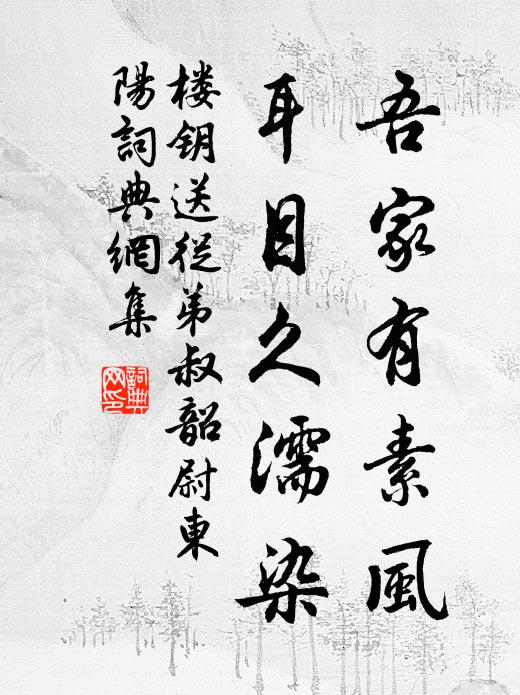 吾家有素風
耳目久濡染
楼钥送從弟叔韶尉東
陽詞典網集
詞典
网印